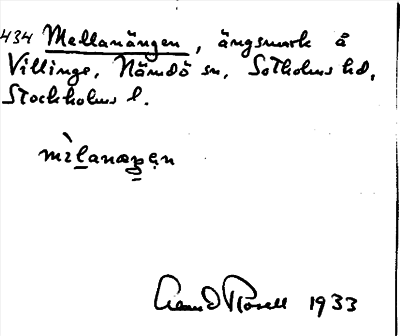 434 Mellanängen, ängsmark å
Villinge, Nämdö sn, Sotholms hd,
Stockholms l.
mìlanæŋen
1933